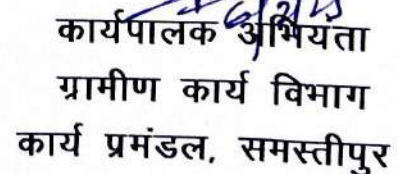 कार्यपालक अभियंता
ग्रामीण कार्य विभाग
कार्य प्रमंडल, समस्तीपुर